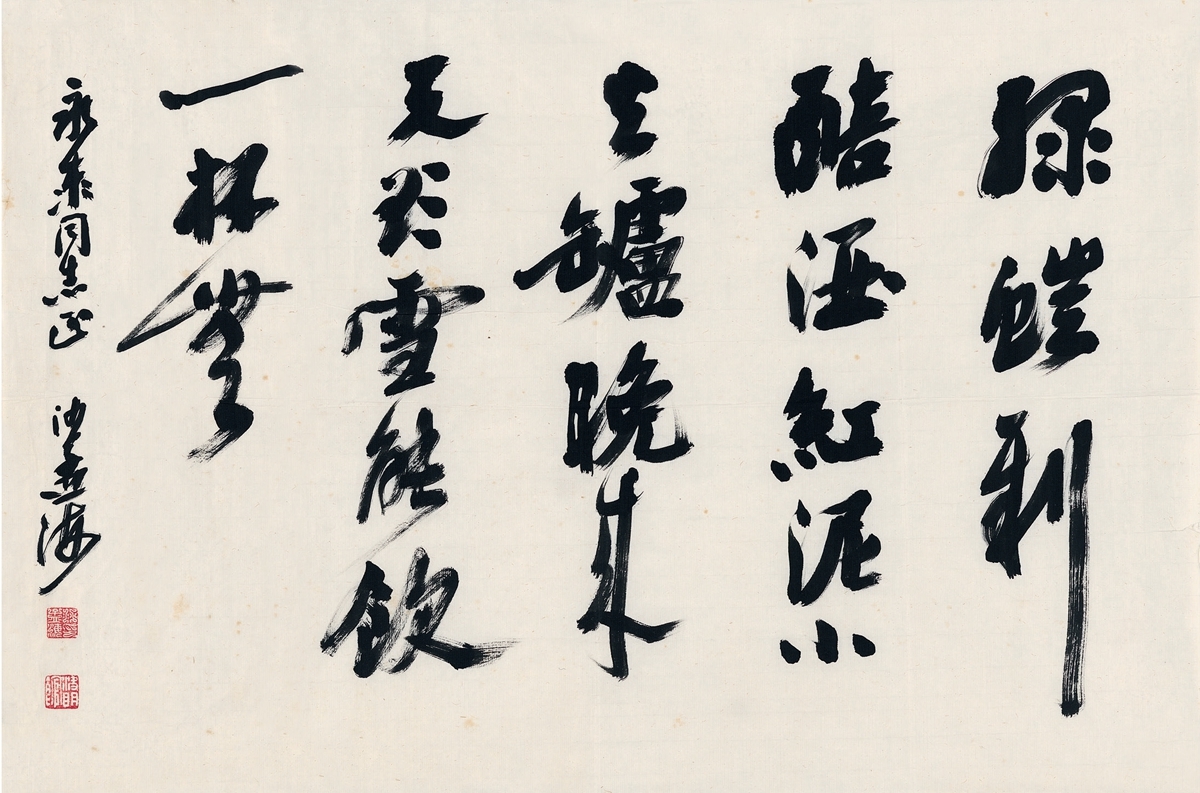 綠螘新
醅酒紅泥小
火罏晚來
天欲雪能飲
一杯無
永同志正 沙孟海